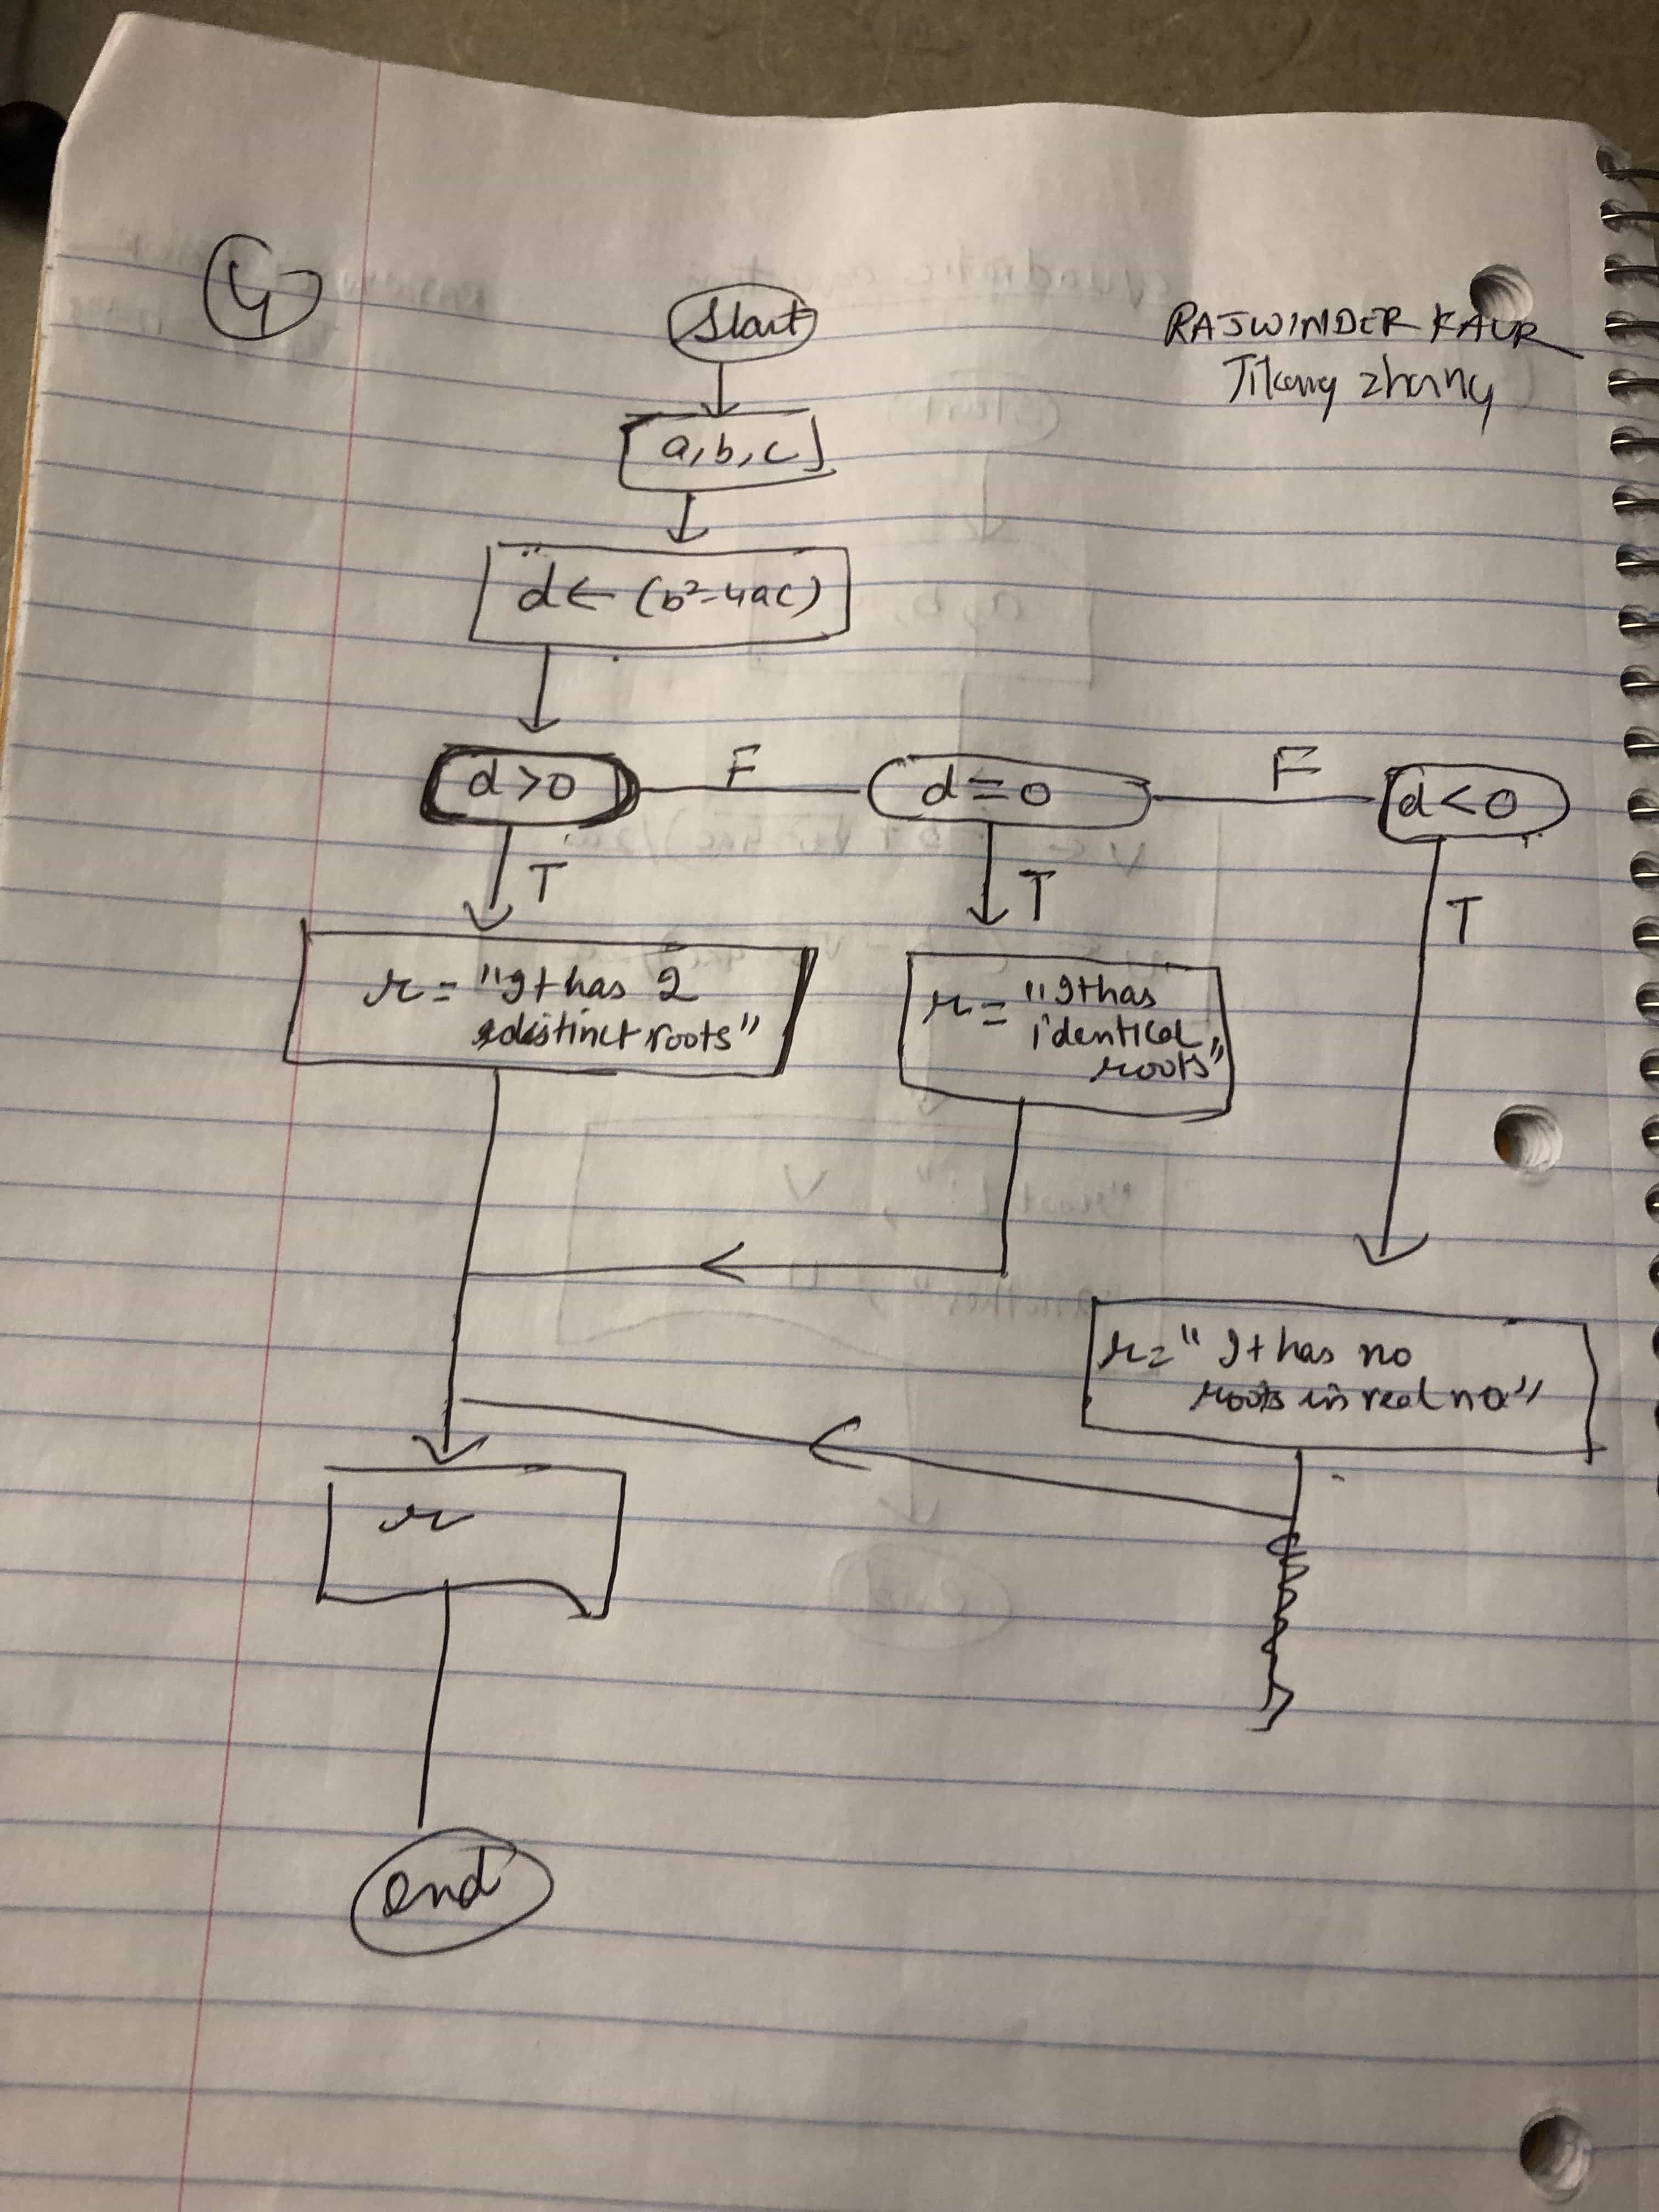 4
Start
RAJWINDER KAUR
zhang
a, b, c
d ← (b²-4ac)
d > 0
F
d = 0
F
d < 0
T
T
T
r = "It has 2
distinct roots"
r = "It has
identical
roots"
r = " It has no
roots in real no"
r
end